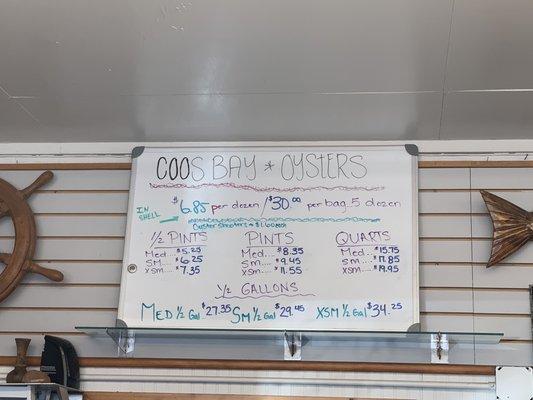 COOS BAY * OYSTERS
IN SHELL $6.85 per dozen / $30.00 per bag. 5 dozen
Oyster Shooters = $1.60 each
1/2 PINTS PINTS QUARTS
Med.... $5.25 Med.... $8.35 Med.... $15.75
SM.... $6.25 Sm.... $9.45 Sm.... $17.85
XSM.... $7.35 XSM.... $11.55 XSM.... $19.95
1/2 GALLONS
MED 1/2 Gal $27.35 SM 1/2 Gal $29.45 XSM 1/2 Gal $34.25